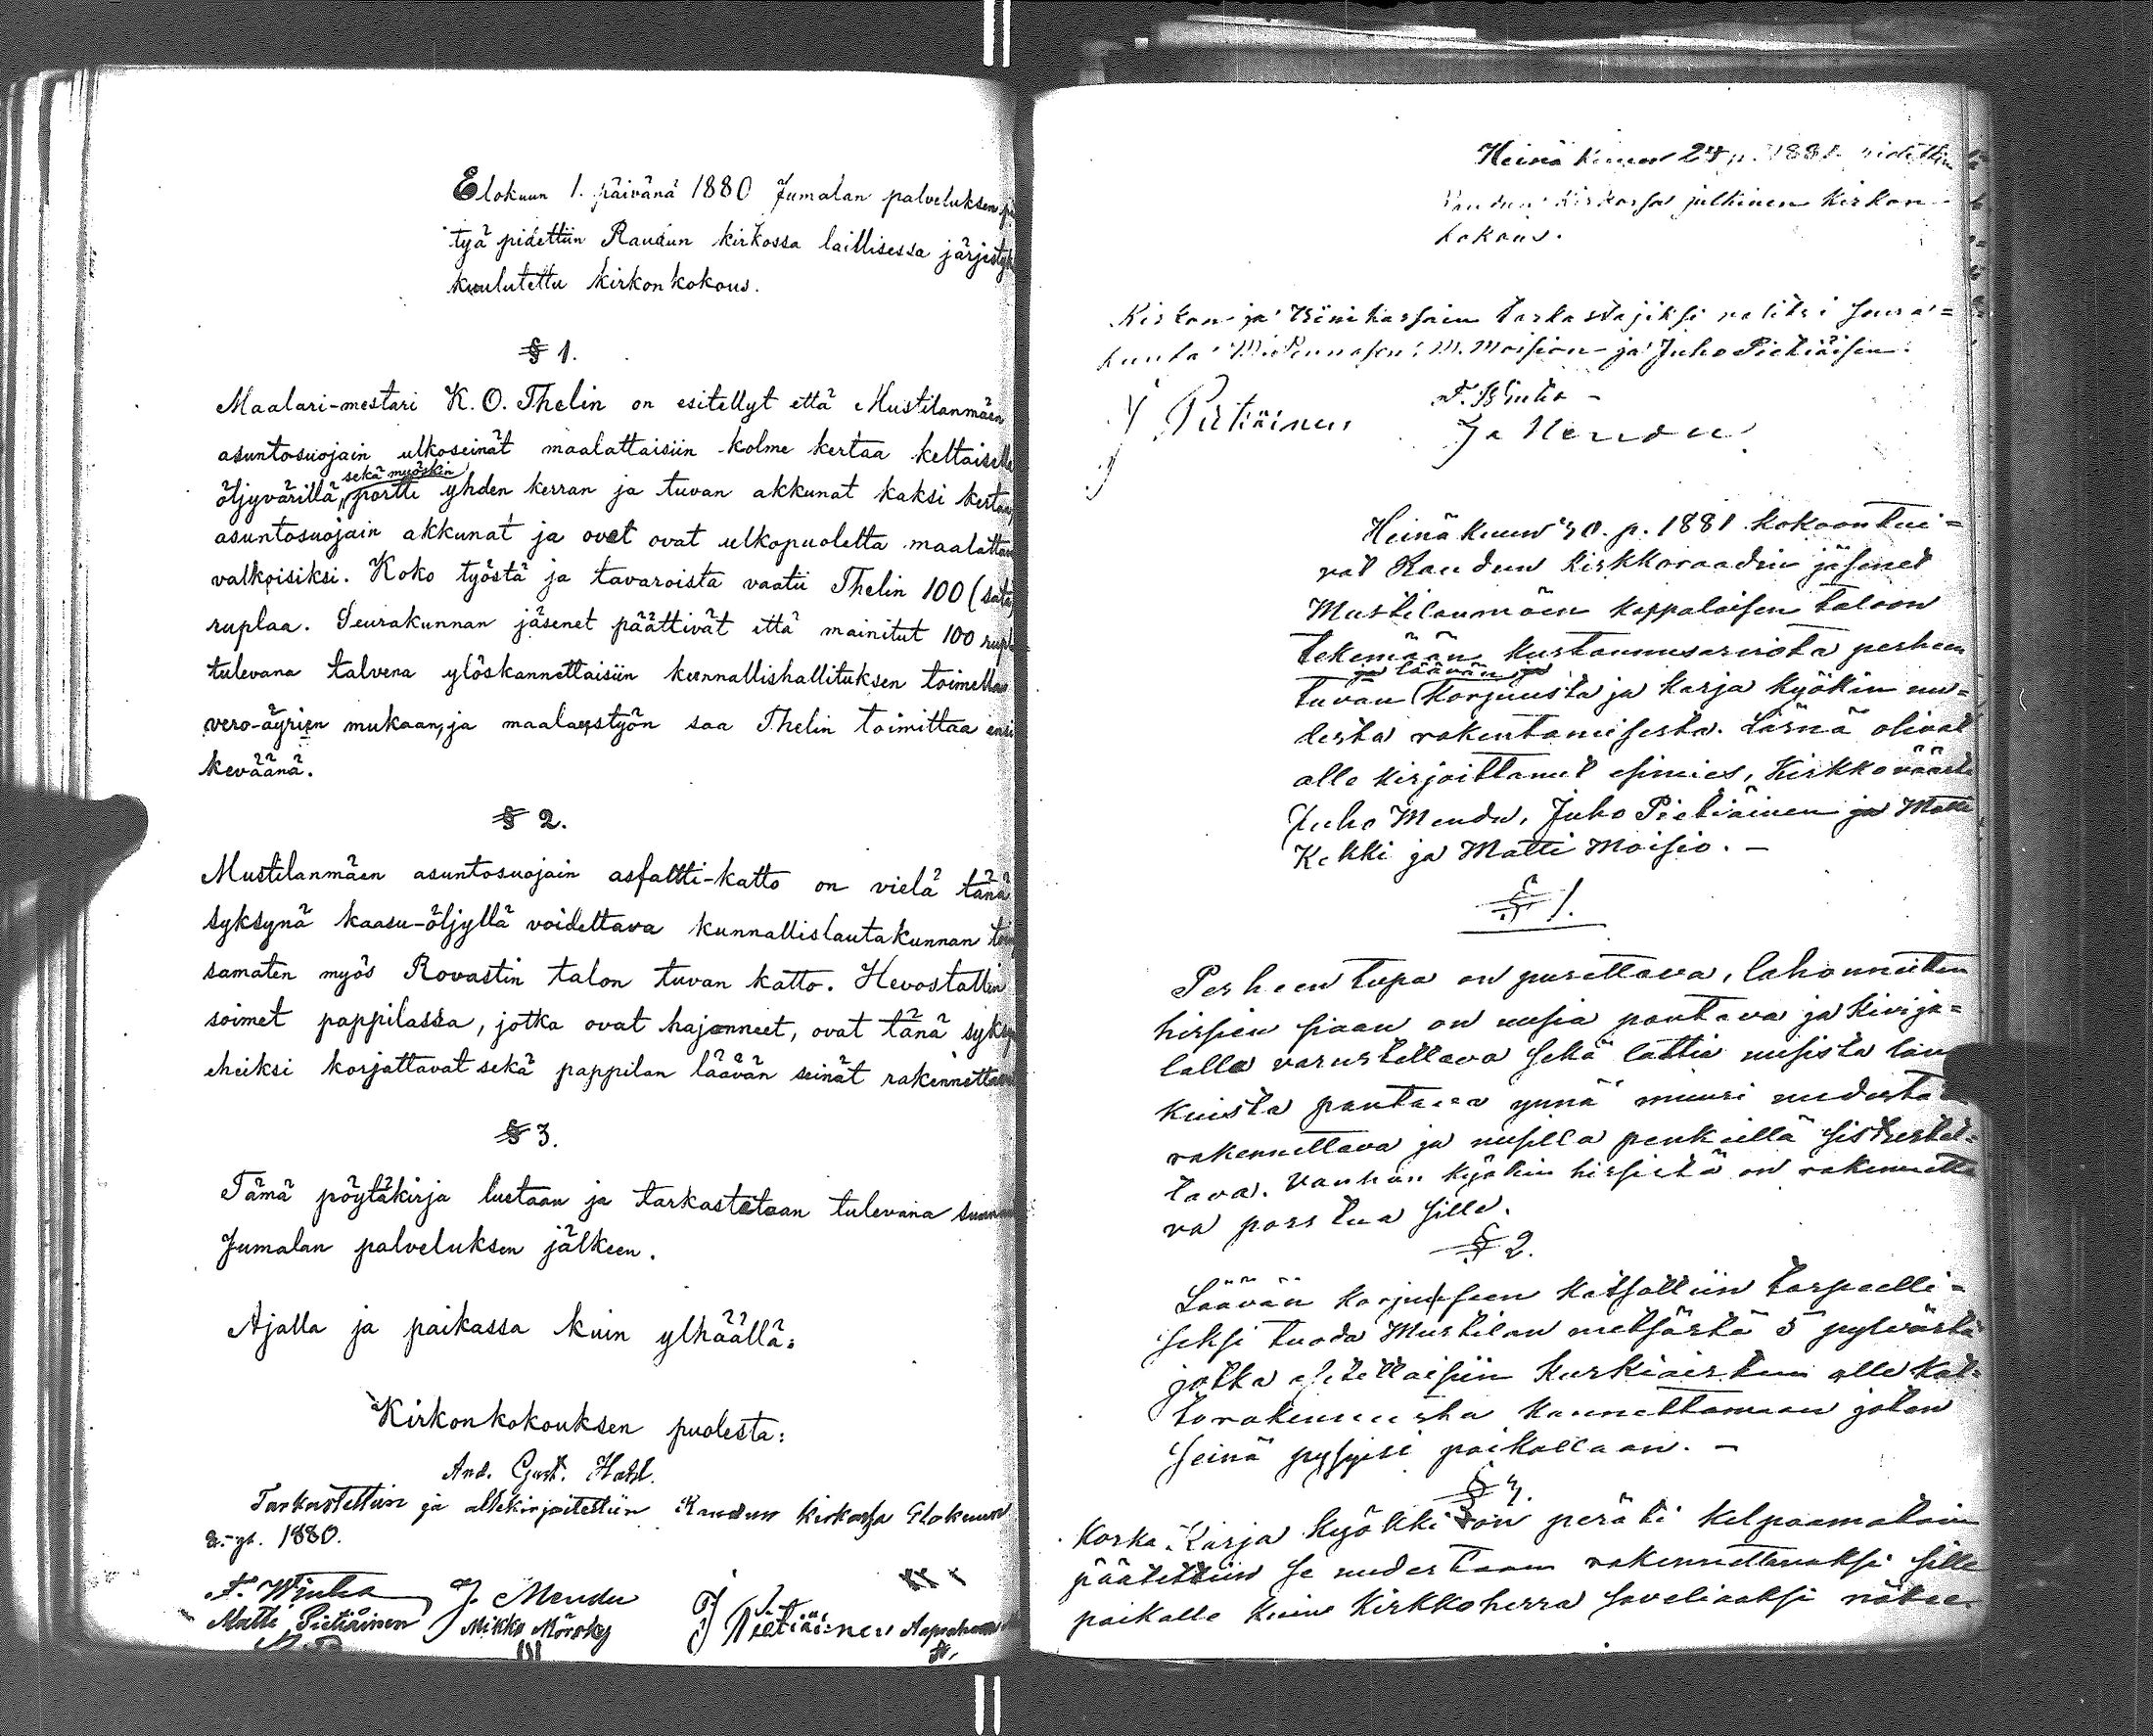 Elokuun 1. päivänä 1880 Jumalan palveluksen
tyä pidettiin Raudun kirkossa laillisessa järjestyk
kuulutettu kirkonkokous.
§ 1.
Maalari-mestari K. O. Thelin on esitellyt että Mustilanmäen
asuntosuojain ulkoseinät maalattaisiin kolme kertaa keltaisella
sekä myöskin
öljyvärillä, portti yhden kerran ja tuvan akkunat kaksi kertaa
asuntosuojain akkunat ja ovet ovat ulkopuolelta maalattav
valkoisiksi. Koko työstä ja tavaroista vaatii Thelin 100 (sata
ruplaa. Seurakunnan jäsenet päättivät että mainitut 100 rupl
tulevana talvena ylöskannettaisiin kunnallishallituksen toimella
vero-äyrien mukaan, ja maalaustyön saa Thelin toimittaa ensi
keväänä.
§ 2.
Mustilanmäen asuntosuojain asfaltti-katto on vielä tänä
syksynä kaasu-öljyllä voideltava kunnallislautakunnan
samaten myös Rovastin talon tuvan katto. Hevostallin
soimet pappilassa, jotka ovat hajonneet, ovat tänä syks
eheiksi korjattavat sekä pappilan läävän seinät rakennettav
§ 3.
Tämä pöytäkirja luetaan ja tarkastetaan tulevana sunn
Jumalan palveluksen jälkeen.
Ajalla ja paikassa kuin ylhäällä:
Kirkonkokouksen puolesta:
And. Gust.
Tarkastettiin ja allekirjoitettiin Raudun kirkossa Elokuun
8. p. 1880.
F. Wjuha J. Mendu J Pietiäinen
Matti Pietiäinen Mikko Mörsky
Heinäkuun 24 p. 1881 pidettiin
Raudun Kirkossa julkinen Kirkon-
kokous.
Kirkon- ja Viinikassain tarkastajiksi valitsi seura=
kunta M. Moision ja Juho Pietiäisen.
J Pietiäinen F. Wjuha
Ju Mendu
Heinäkuun 30. p. 1881 kokoontui=
vat Raudun Kirkkoraadin jäsenet
Mustilanmäen kappalaisen taloon
tekemään kustannusarviota perheen
ja läävän
tuvan korjuusta ja karja kyökin uu=
desta rakentamisesta. Läsnä olivat
alle kirjoittanut esimies, Kirkkoväärti
Juho Mendu, Juho Pietiäinen ja Matti
Kekki ja Matti Moisio. –
§ 1.
Perheen tupa on purettava, lahonneitten
hirsien siaan on uusia pantava ja kivija=
lalla varustettava sekä lattia uusista lau
kuista pantava ynnä muuri uudesta
rakennettava ja uusilla penkillä sisustet=
tava. Vanhan kyökin hirsistä on rakennetta
va porstua sille.
§ 2.
Läävän korjuuseen katsottiin tarpeelli=
seksi tuoda Mustilan metsästä 5 pylvästä
jotka asetettaisiin kurkiaisten alle kat=
torakennusta kannattamaan jotta
seinä pysyisi paikallaan. –
§ 3.
Koska Karja kyökki on peräti kelpaamatoin
päätettiin se uudestaan rakennettavaksi sille
paikalle kuin Kirkkoherra soveliaaksi näkee.